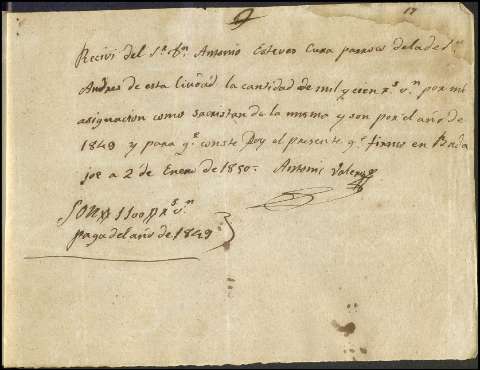 17
Recivi del S.r D.n Antonio Esteves Cura parroco de la de S.n
Andres de esta Ciudad la cantidad de mil y cien r.s v.n por mi
asignacion como Sacristan de la misma y son por el año de
1849 y para q.e conste doy el presente q.e firmo en Bada
joz a 2 de Enero de 1850. Antonio Valero
Son 1100 r.s v.n
paga del año de 1849